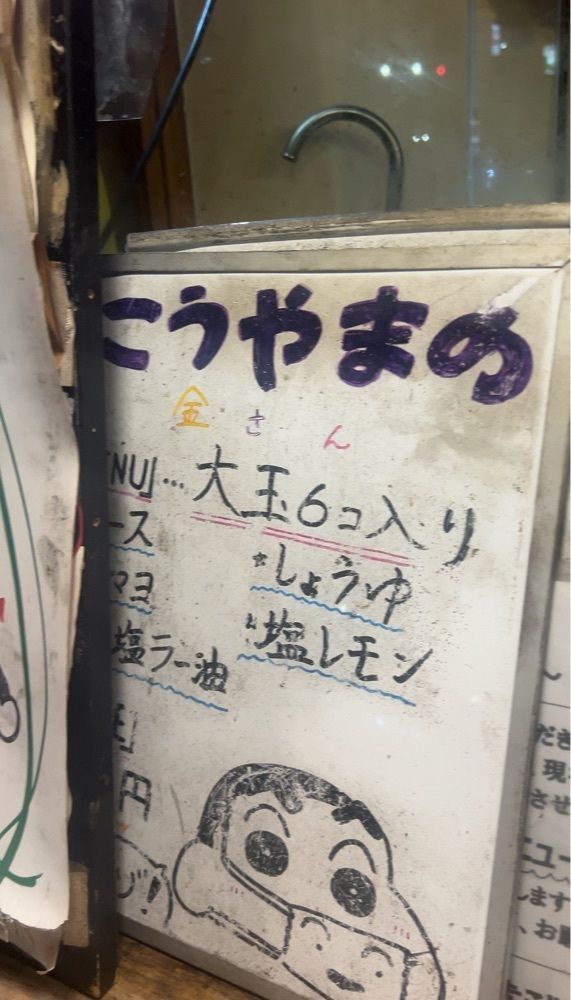 こうやまの
金さん
NU」…大玉6コ入り
ース *しょうゆ
マヨ *塩レモン
塩ラー油
円
ゾ!
だき
現
させ
ニュー
します
、お願